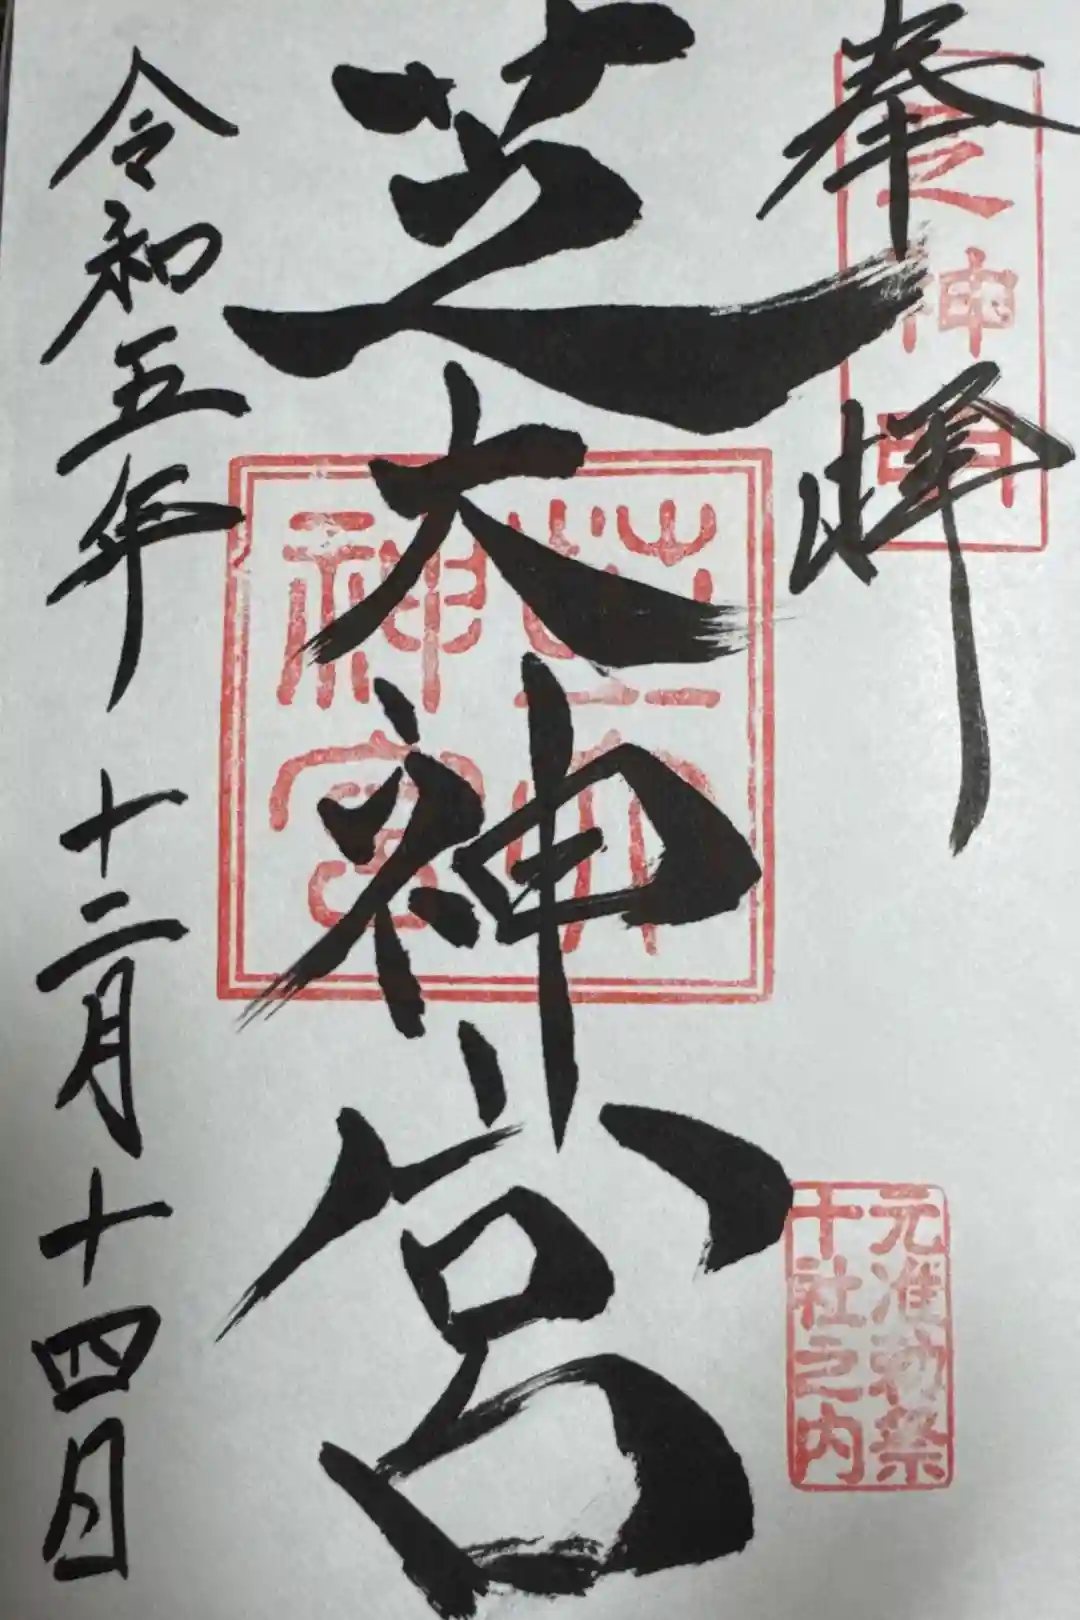 奉拝
之神明
芝大神宮
芝大神宮
元准勅祭
十社之内
令和五年十二月十四日